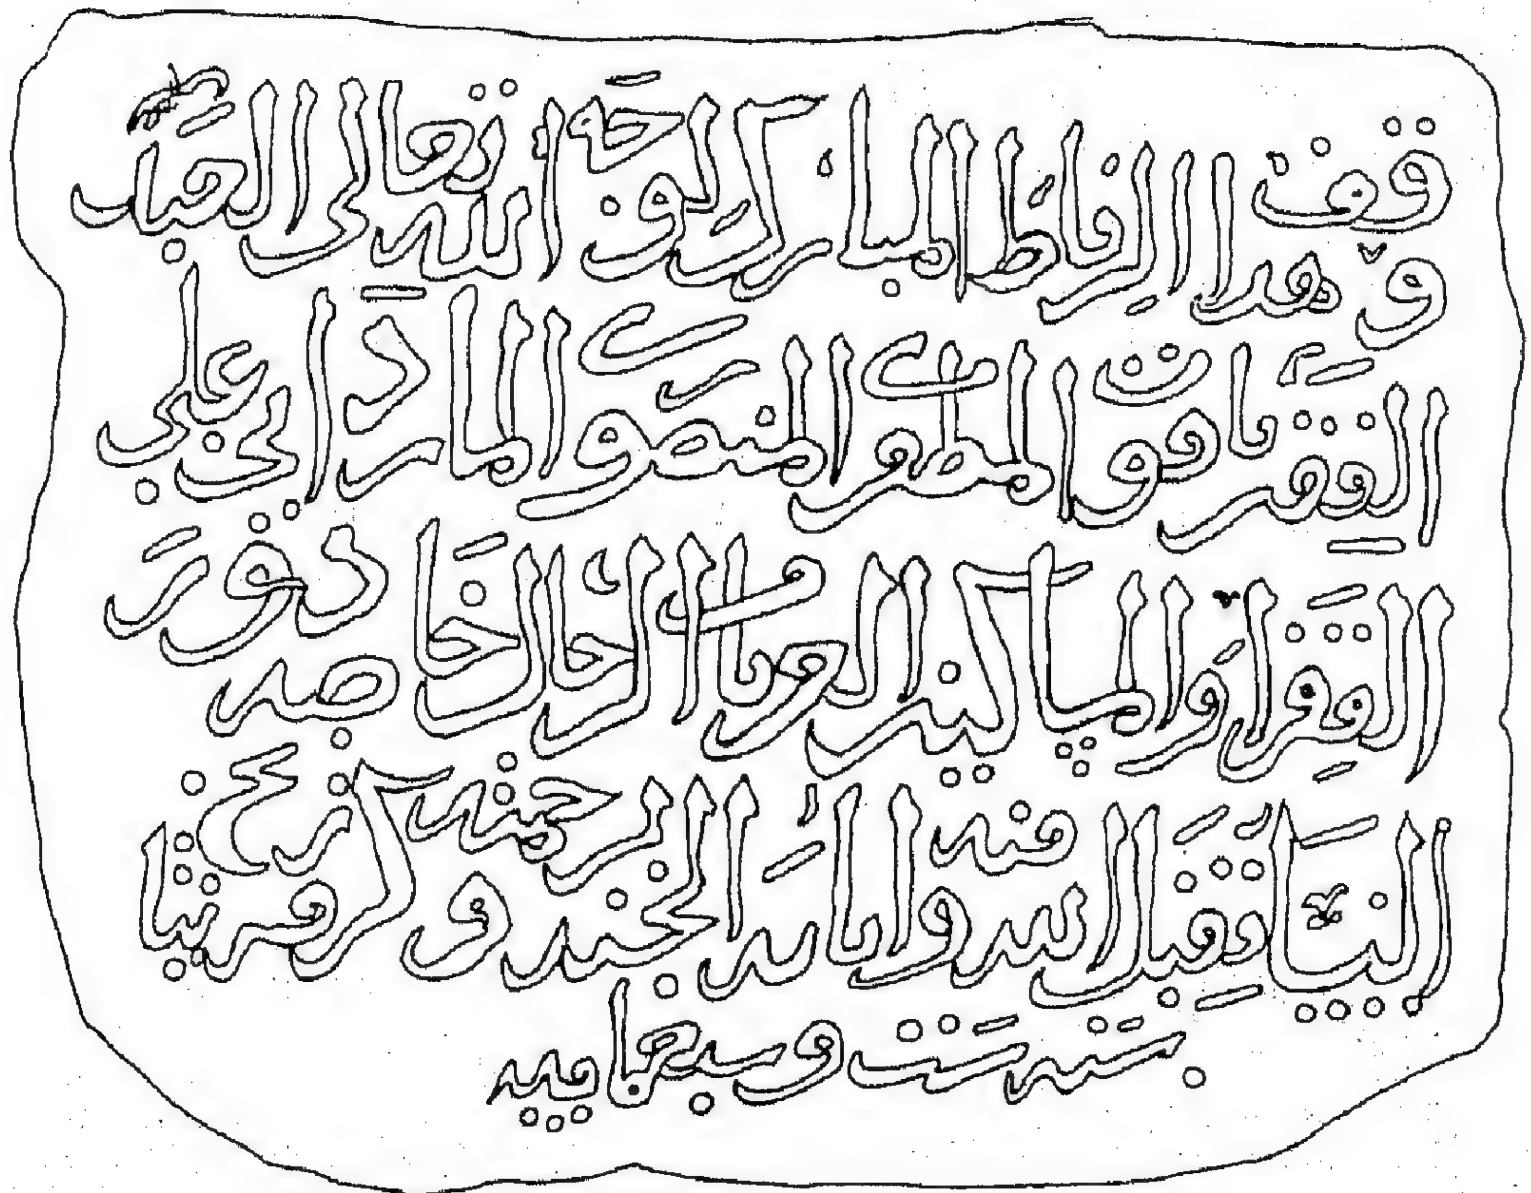 وقف هذا الرباط المبارك لوجه الله تعالى العبد
الفقير ياقوت المظفري المنصوري المارداني على
الفقراء والمساكين الغرباء الرجال خاصة دون
النساء تقبل الله منه واثابه الجنة برحمته وكرمه بتاريخ
سنة ست وسبعمايه